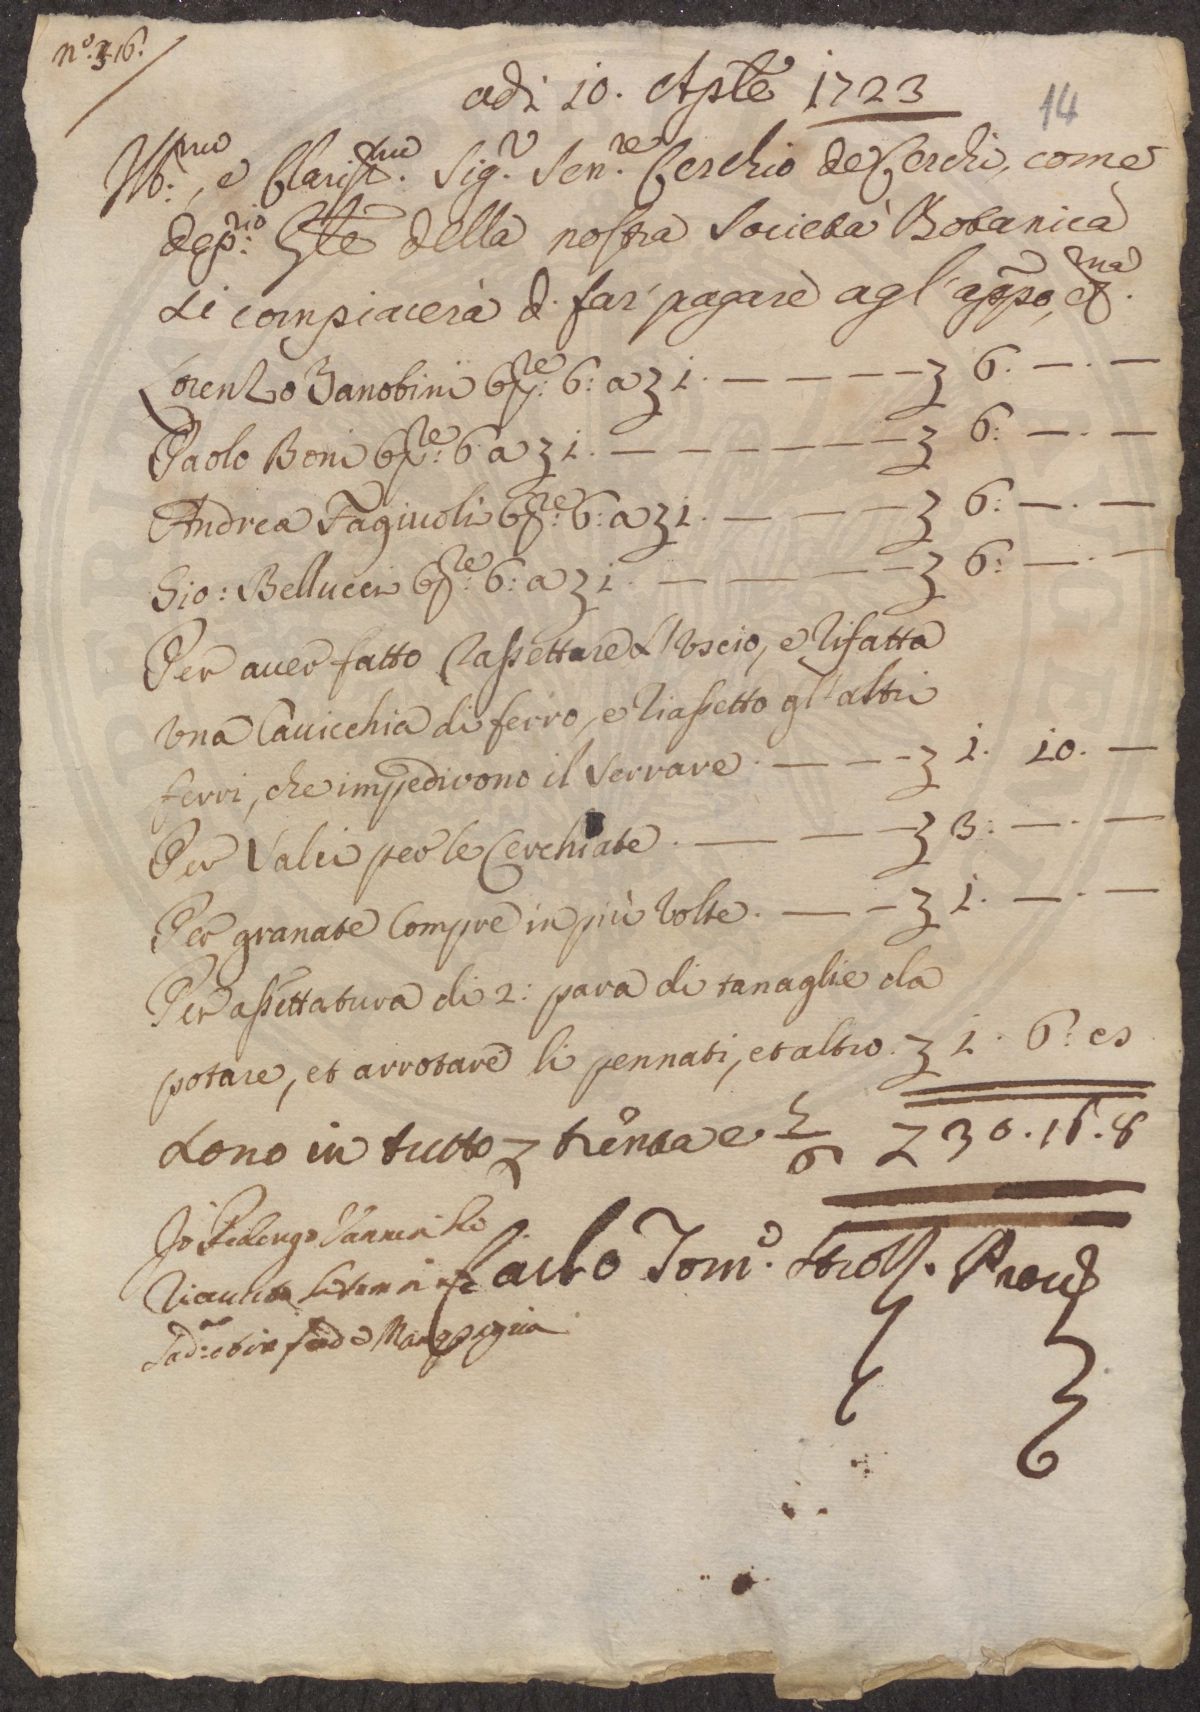 nº. 316.
adi 10. Aple 1723
14
Ill:mo, e Clariss.mo Sig.r Sen.re Cerchio de Cerchi, come
dep:rio Gle della nostra Società Botanica
si compiacerà d. far pagare agl'appo, ma
Lorenzo Zanobini Gte: 6: a 1. — — — — 6. — . —
Paolo Boni Gte: 6 a 1. — — — — — 6: — . —
Andrea Fagiuoli Gte: 6: a 1. — — — — 6: — . —
Gio: Bellucci Gte: 6: a 1. — — — — 6: — . —
Per auer fatto rassettare l'Uscio, e rifatta
una Cauicchia di ferro, e riassetto gl'altri
ferri, che impedivono il serrare. — — — 1. 10. —
Per Salci per le Cerchiate. — — — 3: — . —
Per granate Compre in più volte. — — 1. — . —
Per assettatura di 2: para di tanaglie da
potare, et arrotare li pennati, et altro. 1. 6: 8
Sono in tutto trenta e 30. 16. 8
Io
Carlo Tom.o Strozzi Proue